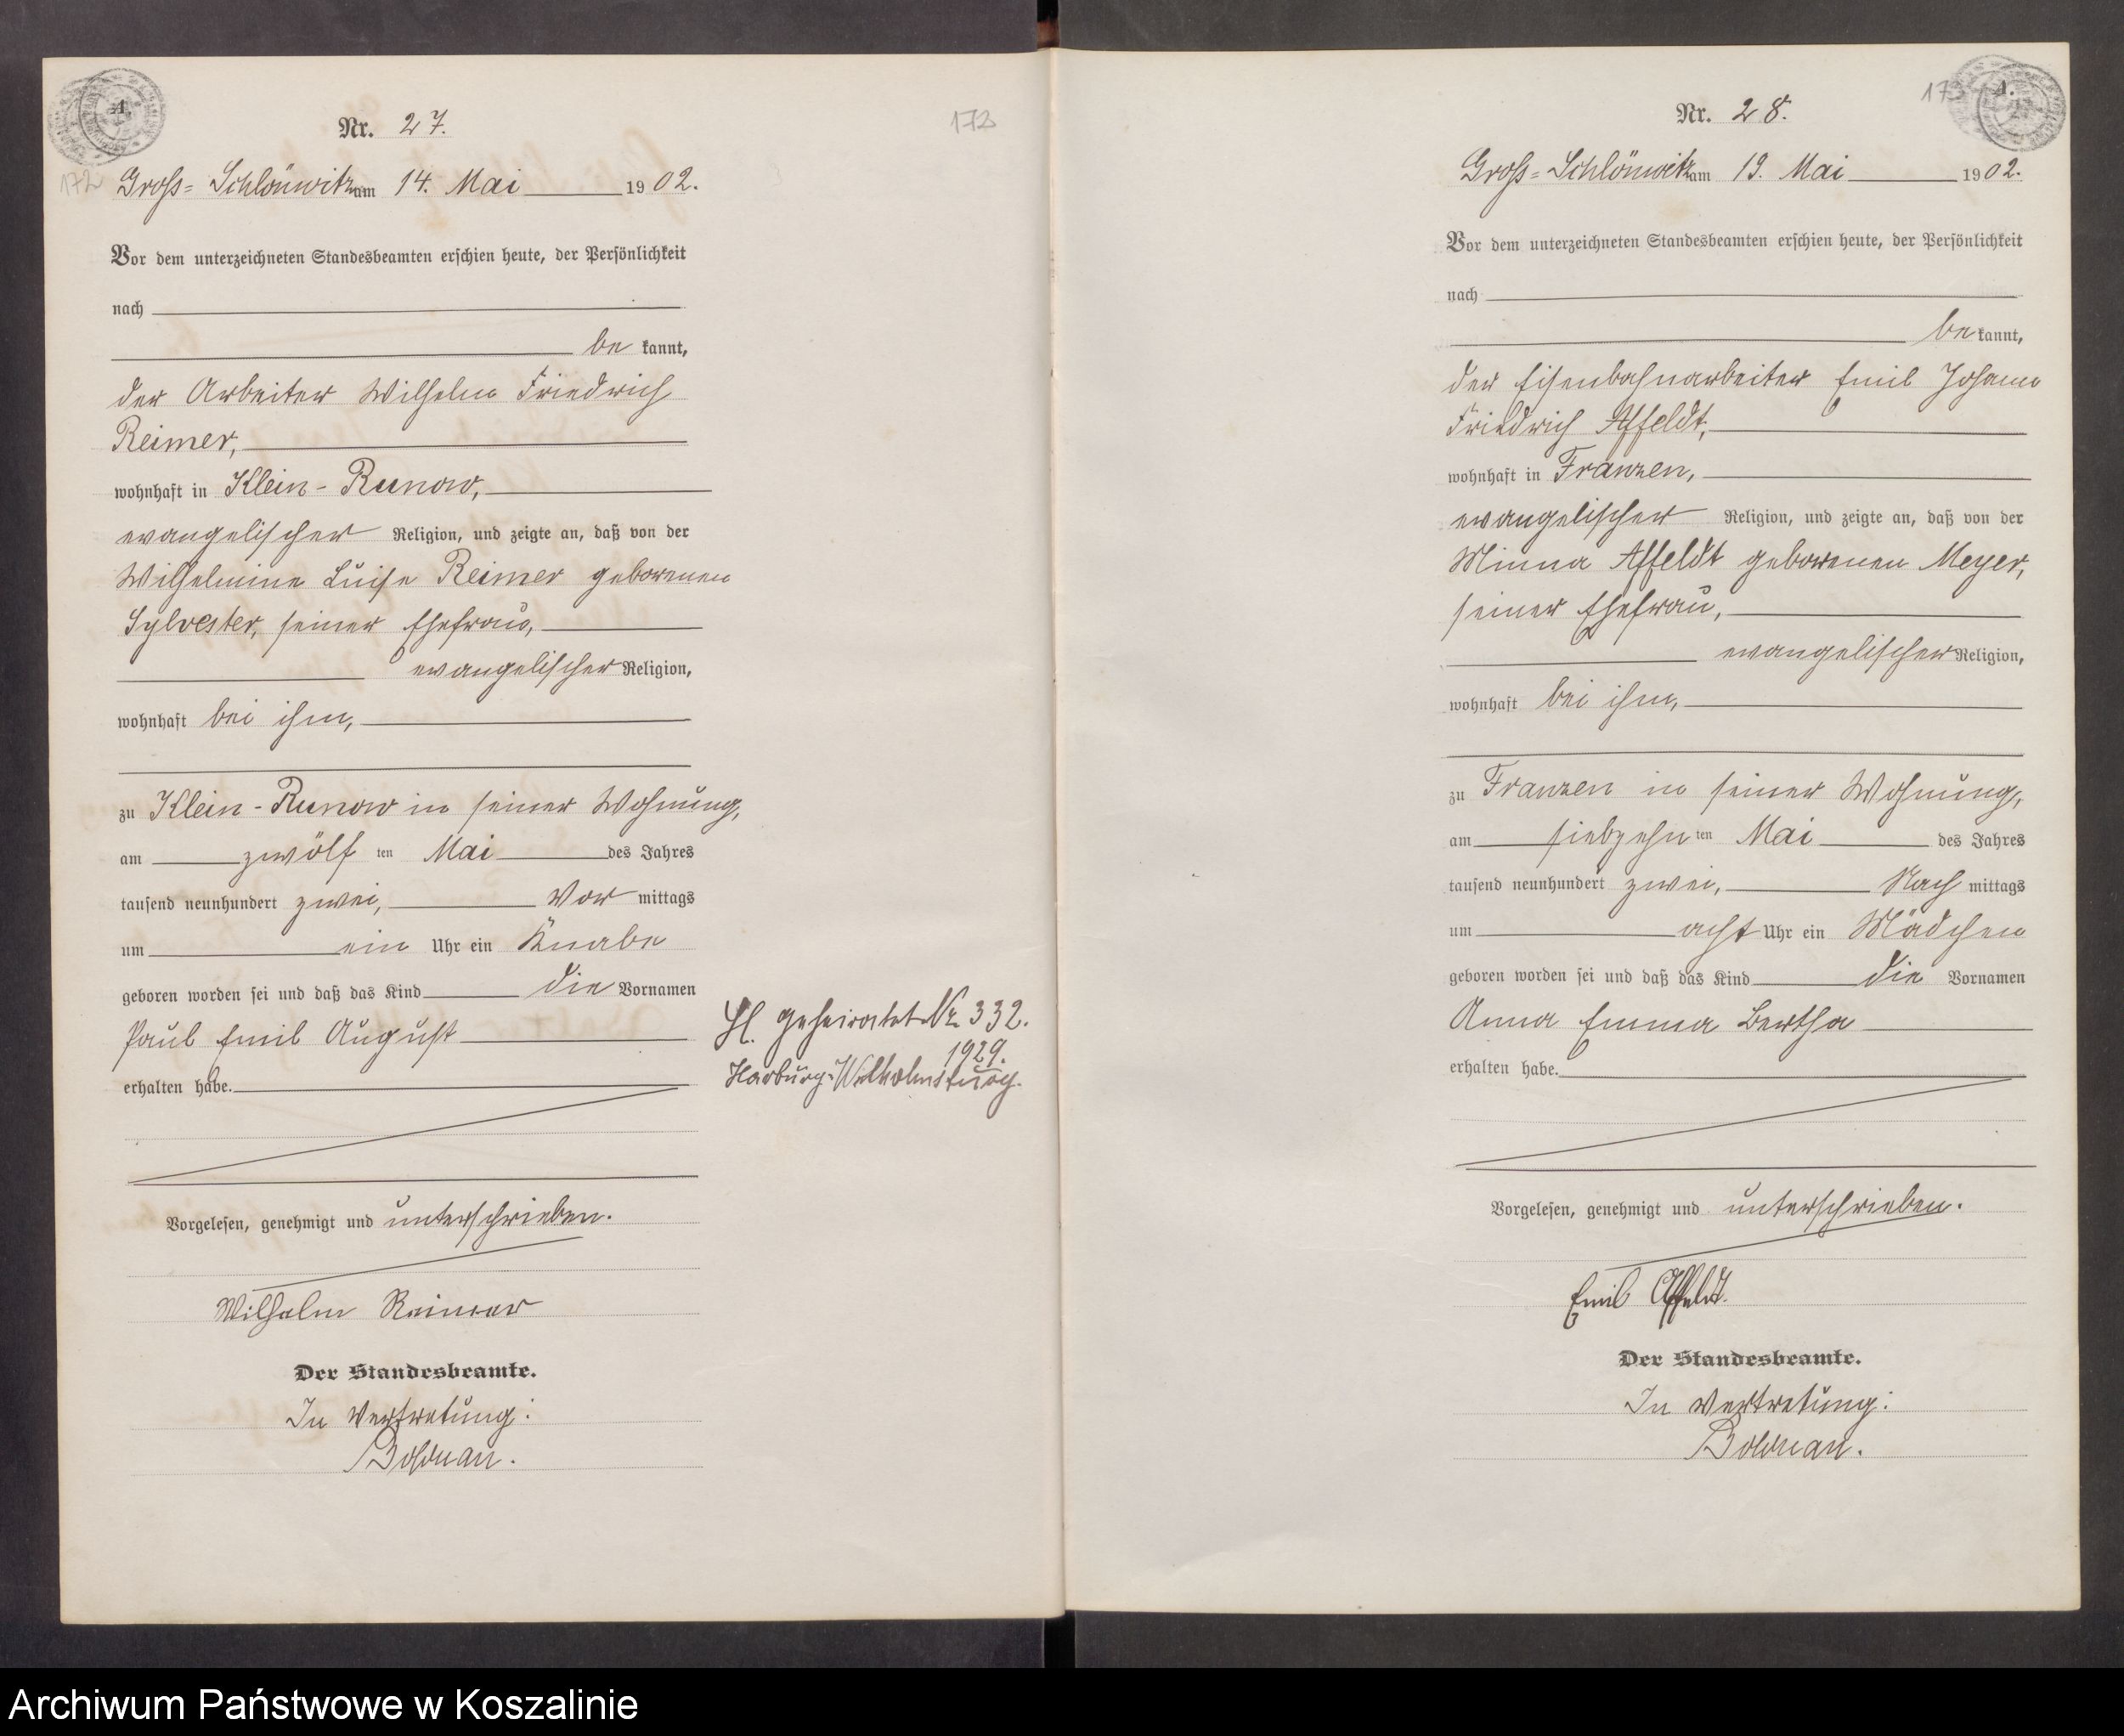 A.
172
Nr. 27.
Groß=Schlönwitz am 14. Mai 1902.
Vor dem unterzeichneten Standesbeamten erschien heute, der Persönlichkeit
nach
be kannt,
der Arbeiter Wilhelm Friedrich
Reimer,
wohnhaft in Klein-Runow,
evangelischer Religion, und zeigte an, daß von der
Wilhelmine Luise Reimer geborenen
Sylvester, seiner Ehefrau,
evangelischer Religion,
wohnhaft bei ihm,
zu Klein-Runow in seiner Wohnung,
am zwölf ten Mai des Jahres
tausend neunhundert zwei, Vor mittags
um ein Uhr ein Knabe
geboren worden sei und daß das Kind die Vornamen
Paul Emil August
erhalten habe.
Vorgelesen, genehmigt und unterschrieben.
Wilhelm Reimer
Der Standesbeamte.
In Vertretung:
172
geheiratet Nr. 332.
1929.
Harburg-Wilhelmsburg.
173
A.
Nr. 28.
Groß=Schlönwitz am 19. Mai 1902.
Vor dem unterzeichneten Standesbeamten erschien heute, der Persönlichkeit
nach
be kannt,
der Eisenbahnarbeiter Emil Johann
Friedrich Affeldt,
wohnhaft in Franzen,
evangelischer Religion, und zeigte an, daß von der
Minna Affeldt geborenen Meyer,
seiner Ehefrau,
evangelischer Religion,
wohnhaft bei ihm,
zu Franzen in seiner Wohnung,
am siebzehn ten Mai des Jahres
tausend neunhundert zwei, Nach mittags
um acht Uhr ein Mädchen
geboren worden sei und daß das Kind die Vornamen
Anna Emma Bertha
erhalten habe.
Vorgelesen, genehmigt und unterschrieben.
Emil Affeldt.
Der Standesbeamte.
In Vertretung:
Archiwum Państwowe w Koszalinie